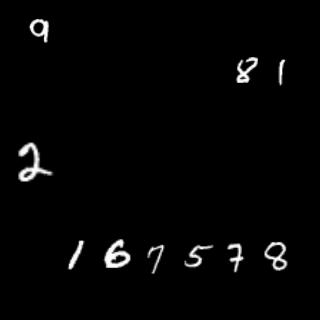 9
8 1
2
1 6 7 5 7 8